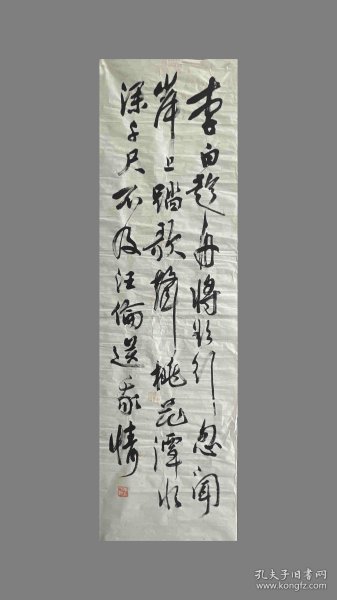 李白趁舟將欲行忽聞
岸上踏歌聲桃花潭水
深千尺不及汪倫送我情
孔夫子旧书网
www.kongfz.com